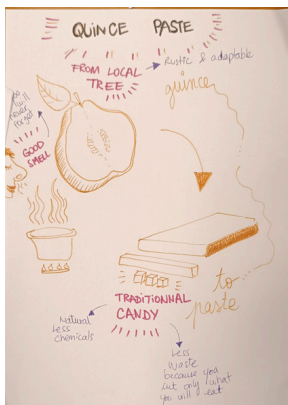 QUINCE PASTE
FROM LOCAL
TREE
Rustic & adaptable
quince
you
will
never
forget
GOOD
SMELL
to
paste
TRADITIONNAL
CANDY
Natural
Less
chemicals
Less
waste
because you
cut only what
you will eat